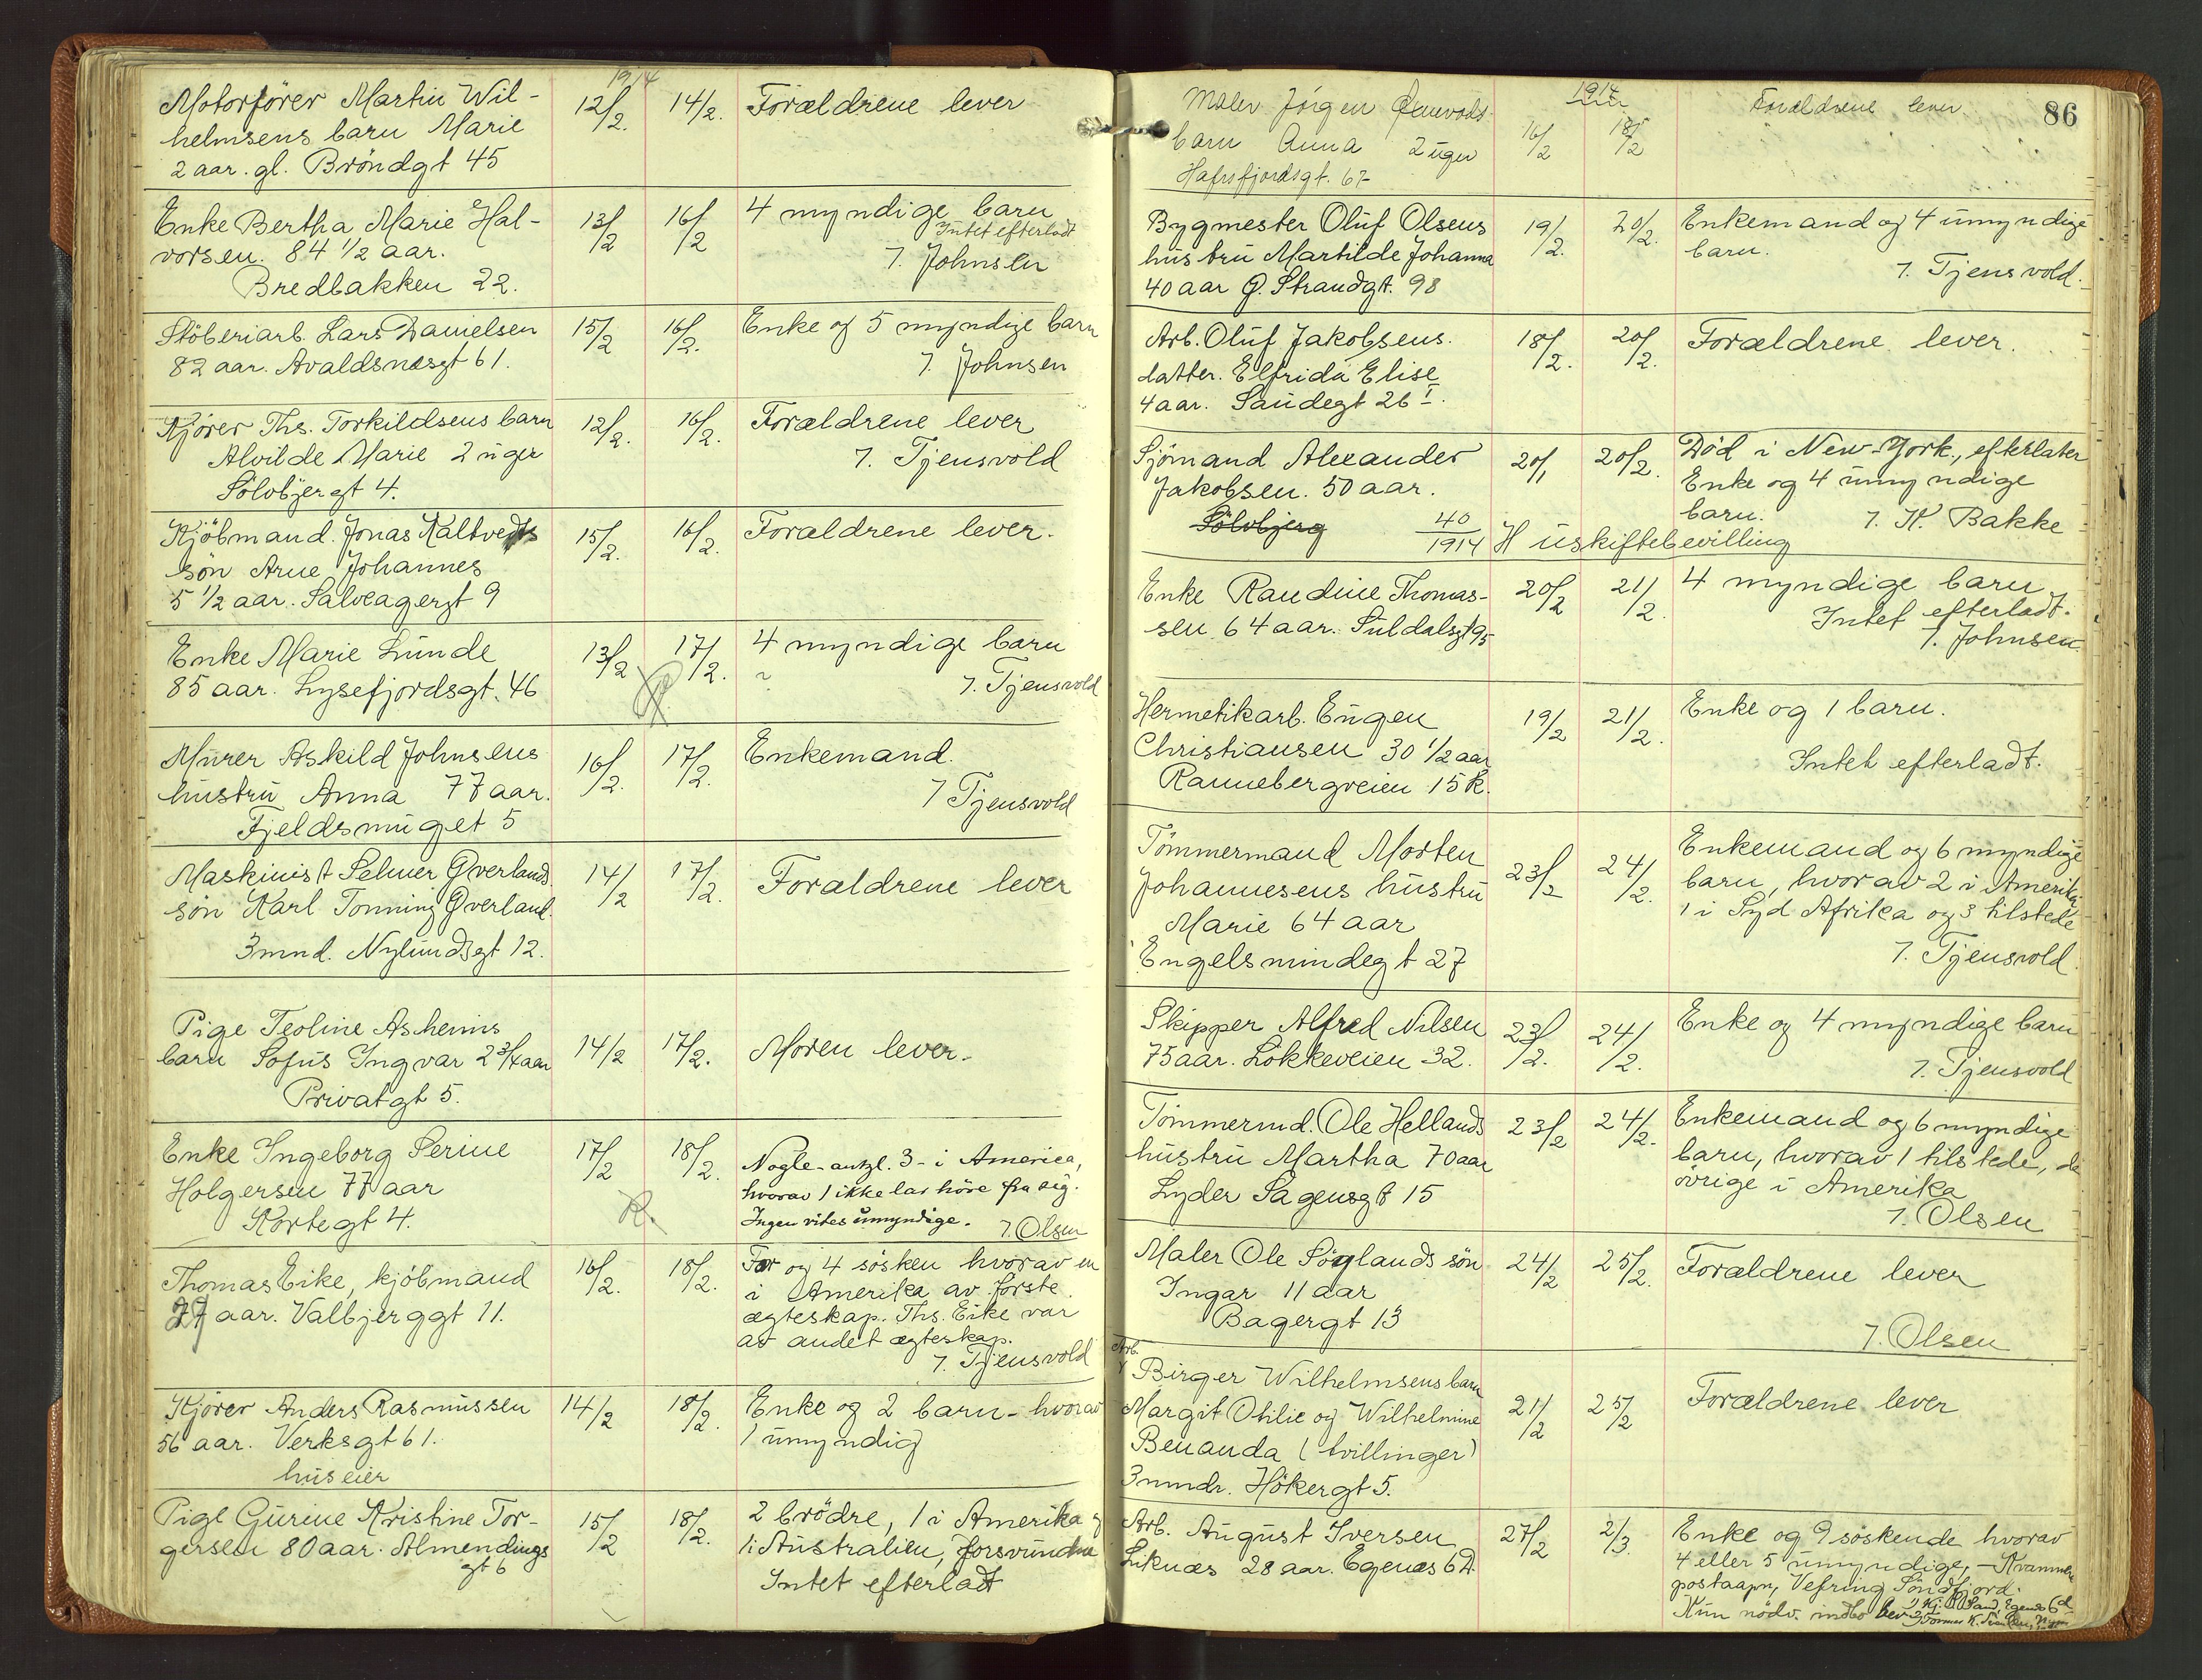 1914
Motorförer Martin Wil-
helmsens barn Marie
2 aar. gl. Bröndgt 45
12/2. 14/2. Forældrene lever
Enke Bertha Marie Hal-
vorsen. 84 1/2 aar.
Bredbakken 22.
13/2 16/2 4 myndige barn
Intet efterladt
7. Johnsen
Stöberiarb. Lars Danielsen
82 aar. Avaldsnesgt 61.
15/2 16/2. Enke og 5 myndige barn
7. Johnsen
Kjörer Ths. Torkildsens barn
Alvilde Marie 2 uger
Sölvbjergt 4.
12/2. 16/2. Forældrene lever
7. Tjensvold
Kjöbmand. Jonas Kaltvedts
sön Arne Johannes
5 1/2 aar. Salveagergt 9
15/2. 16/2. Forældrene lever.
Enke Marie Lunde
85 aar. Lysefjordsgt. 46
13/2 17/2. 4 myndige barn
7. Tjensvold
Murer Askild Johnsens
hustru Anna 77 aar.
Fjeldsmuget 5
16/2. 17/2. Enkemand.
7 Tjensvold
Maskinist Selmer Øverlands
sön Karl Tonning Øverland.
3 mnd. Nylundsgt 12.
14/2 17/2. Forældrene lever
Pige Teoline Asheims
barn Sofus Ingvar 2 3/4 aar
Privatgt 5.
14/2 17/2. Moren lever.
Enke Ingeborg Serine
Holgersen 77 aar
Kortegt 4.
17/2 18/2. Nogle - antgl. 3 - i America,
hvorav 1 ikke lar höre fra sig.
Ingen vites umyndige. 7. Olsen
R.
Thomas Eike, kjöbmand
27 aar. Valbjerggt 11.
16/2. 18/2. Far og 4 sösken hvorav en
i Amerika av förste
ægteskap. Ths. Eike var
av andet ægteskap.
7. Tjensvold
Kjörer Anders Rasmussen
56 aar. Verksgt 61.
huseier
14/2 18/2. Enke og 2 barn - hvorav
1 umyndig
Pige Gurine Kristine Tor-
gersen 80 aar. Almendings
gt 6
15/2 18/2. 2 brödre, 1 i Amerika og
1 i Australien, forsvundne
Intet efterladt
86
1914
Maler Jörgen
barn Anna 2 uger
Hafrsfjordsgt. 67
16/2 18/2 Forældrene lever
Bygmester Oluf Olsens
hustru Martilde Johanna
40 aar Ø. Strandgt. 98
19/2. 20/2. Enkemand og 4 umyndige
barn.
7. Tjensvold.
Arb. Oluf Jakobsens.
datter. Elfrida Elise
4 aar. Saudegt 26 I.
18/2. 20/2. Forældrene lever.
Sjömand Alexander
Jakobsen. 50 aar.
Sölvbjerg
20/1 20/2. Död i New-York, efterlater
Enke og 4 umyndige
barn. 7. K. Bakke
40/1914 H uskiftebevilling
Enke Raudine Thomas-
sen 64 aar. Suldalsgt 95
20/2 21/2. 4 myndige barn
Intet efterladt.
7. Johnsen
Hermetikarb. Eugen
Christiansen 30 1/2 aar
Rannebergveien 15 k.
19/2 21/2. Enke og 1 barn.
Intet efterladt.
Tömmermand Morten
Johannesens hustru
Marie 64 aar
Engelsmindegt 27
23/2 24/2. Enkemand og 6 myndige
barn, hvorav 2 i Amerika
1 i Syd Afrika og 3 tilstede
7. Tjensvold.
Skipper Alfred Nilsen
75 aar. Lökkeveien 32.
23/2. 24/2. Enke og 4 myndige barn
7. Tjensvold
Tömmermd. Ole Hellands
hustru Martha 70 aar
Lyder Sagensgt 15
23/2 24/2. Enkemand og 6 myndige
barn, hvorav 1 tilstede, de
övrige i Amerika
7. Olsen
Maler Ole Söylands sön
Ingar 11 aar
Bagergt 13
24/2 25/2. Forældrene lever
7. Olsen
Arb.
Birger Wilhelmsens barn
Margit Otilie og Wilhelmine
Benanda (tvillinger)
3 mndr. Hökergt 5.
21/2 25/2 Forældrene lever
Arb. August Iversen
Liknæs 28 aar. Egenæs 6 d.
27/2 2/3. Enke og 9 söskende hvorav
4 eller 5 umyndige, - Kvammen
postaapn, Vefring Söndfjord.
Kun nödv. indbo